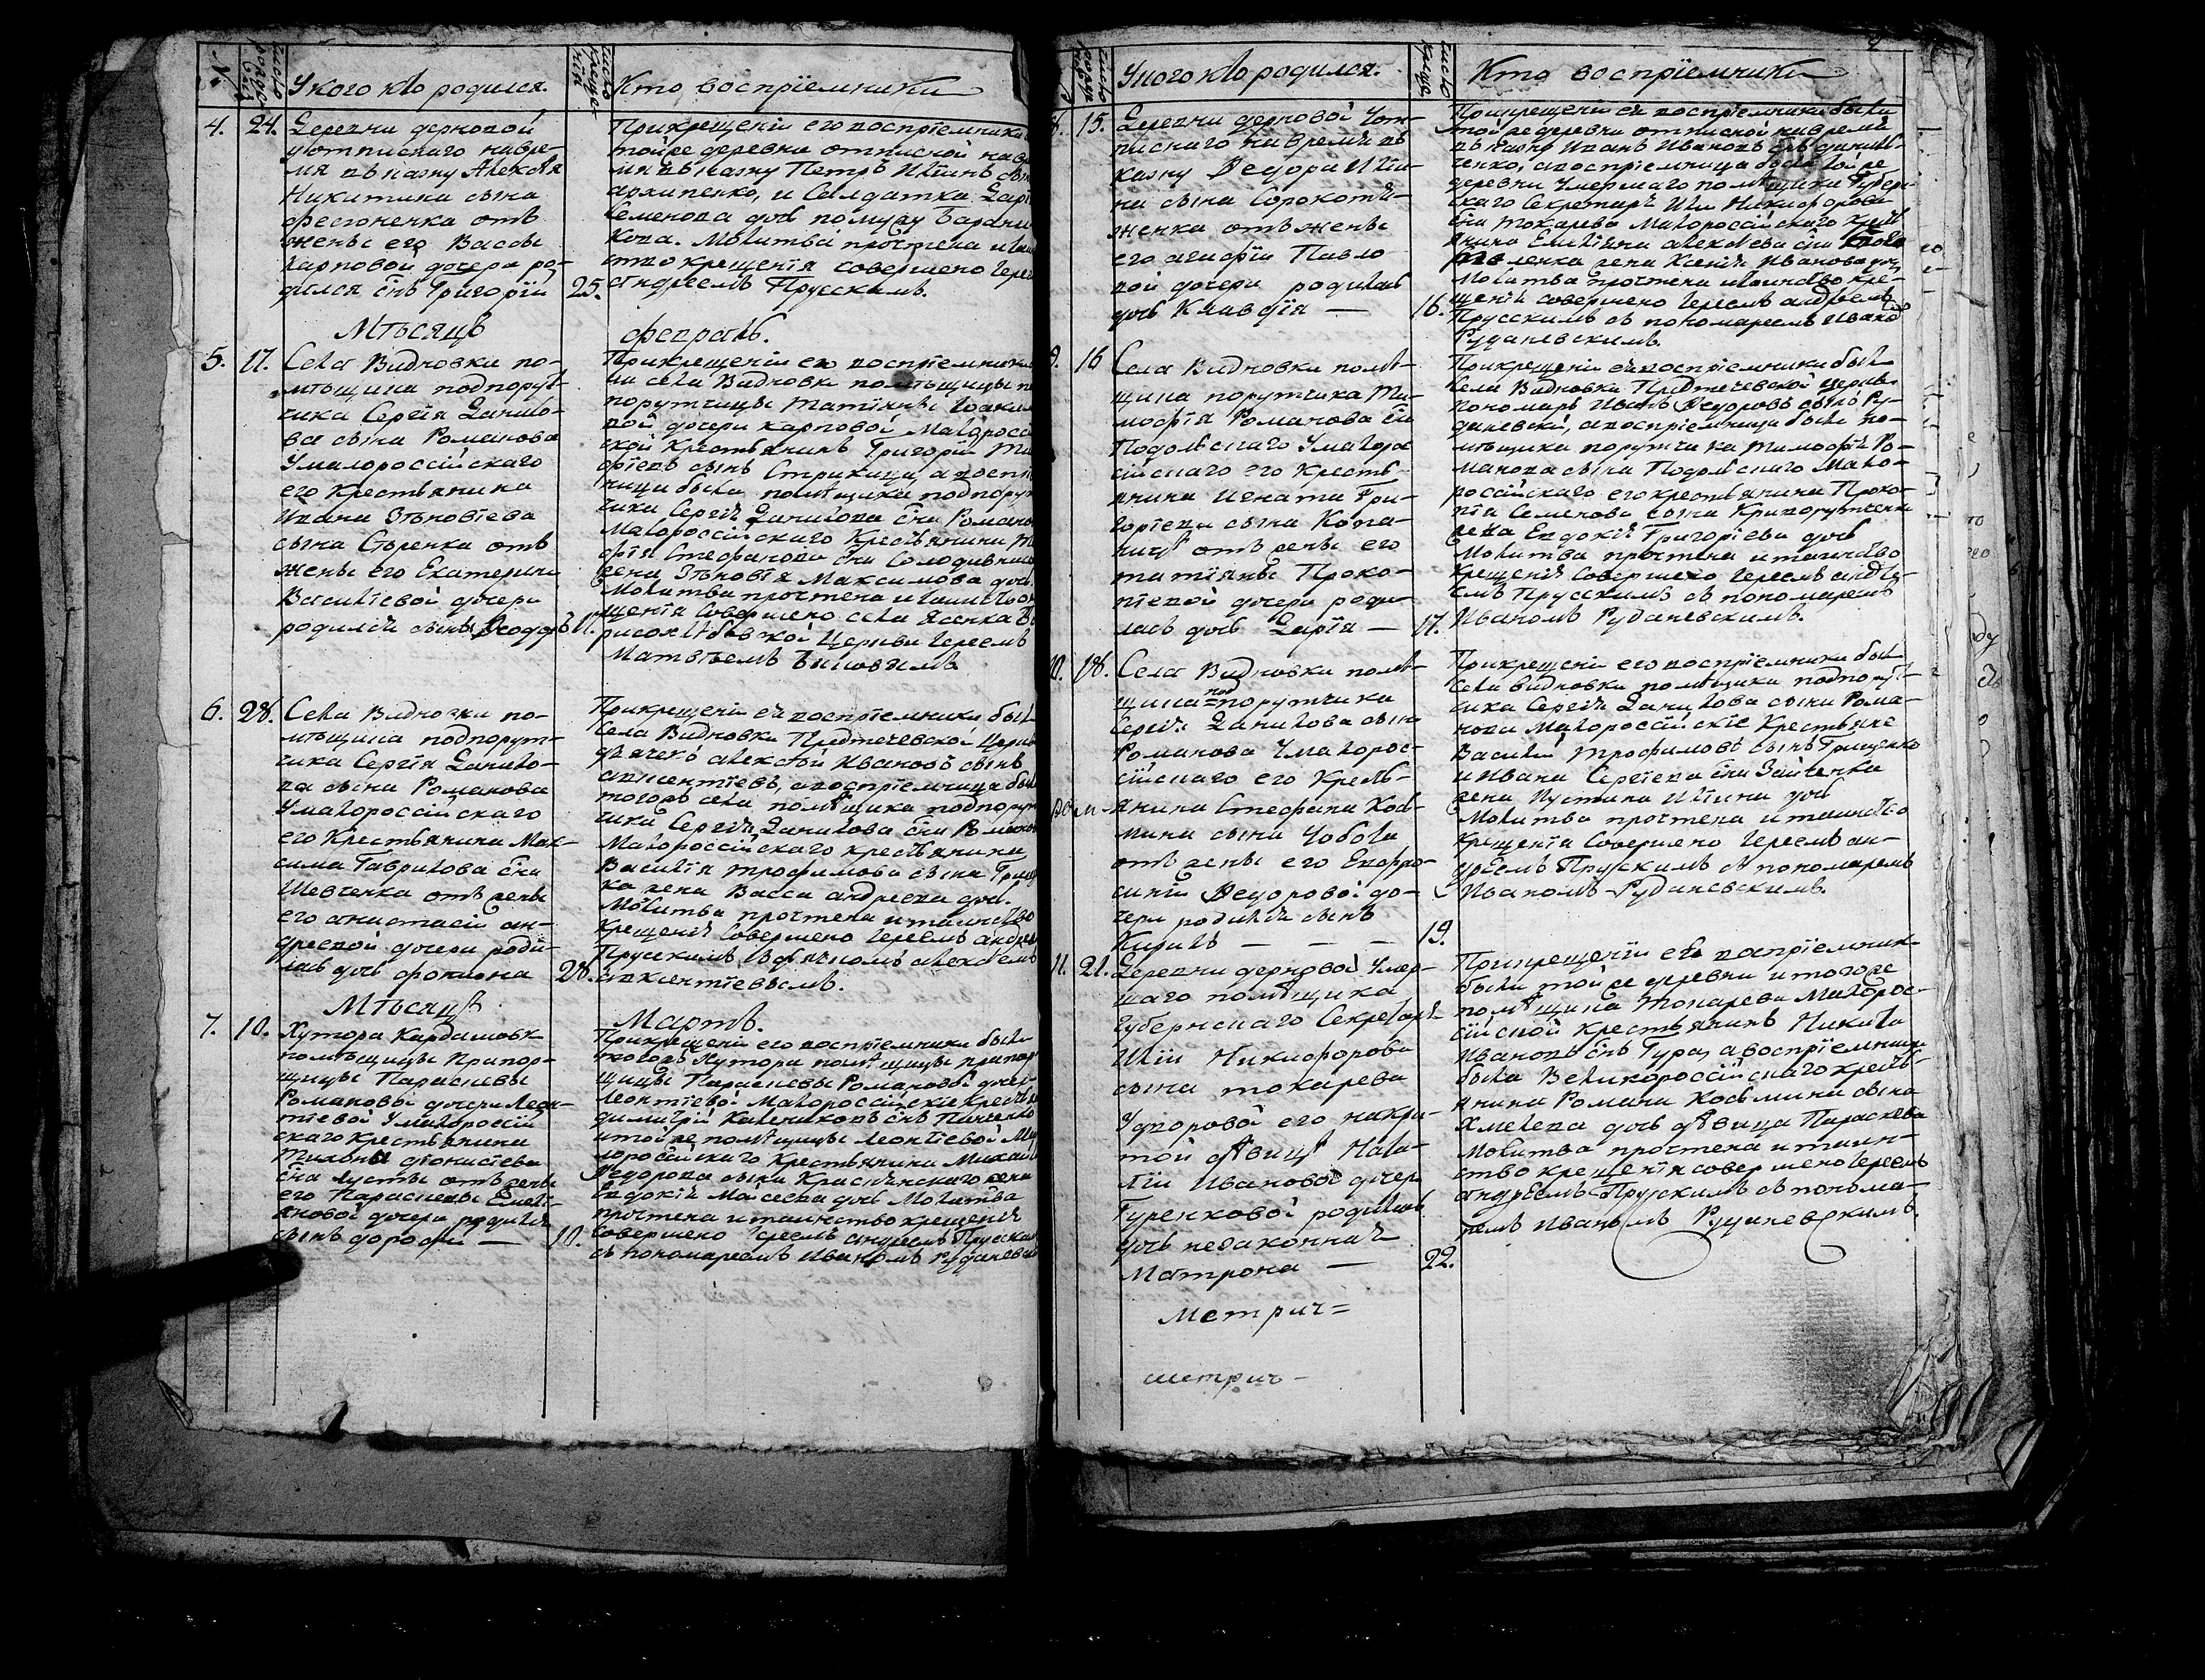 №
число рожде нїя
У кого кто родился.
число креще нїя
Кто воспрїемники
4. 24. Деревни дерновой
у отписнаго на вре-
мя въ казну Алексѣя
Никитина сына
фесюненка отъ
жены его Вассы
Карповой дочери ро-
дился снъ Григорїй 25.
При крещенїи его воспрїемники
той же деревни отписной на
мя въ казну Петръ сынъ
архипенко, и Салдатка
Семенова дочь по мужу
Молитва прочтена и
ство крещенїя совершено Іереем
андреемъ Прусскимъ.
Мѣсяцъ февраль.
5. 17. Села Видновки по-
мѣщика подпорут-
чика Сергїя Данило-
ва сына Романова
У малороссїйскаго
его крестьянина
Ивана Зѣновїева
сына отъ
жены его Екатерины
Василїевой дочери
родился сынъ Ѳеодоръ 17.
При крещенїи его воспрїемники
ли села Видновки помѣщицы
порутчицы Татїяны Іоаки
вой дочери карповой Малоросс
ской Крестьянинъ Григорїй
фїевъ сынъ Стрижица, а воспрї
ница была помѣщика подпорут
чика Сергїя Данилова сна Романо
Малороссїйскаго Крестьянина
фїя Стефанова сна
жена Зѣновїя Максимова дочь.
Молитва прочтена и
щенїя совершено села Ясенка
рисоглѣбской Церкви Іереемъ
Матвѣемъ
6. 28. Села Видновки по-
мѣщика подпорут-
чика Сергїя Данило-
ва сына Романова
У малороссїйскаго
его Крестьянина Мак-
сима Гаврилова сна
Шевченка отъ жены
его анастасїи ан-
дреевой дочери роди-
лась дочь 28.
При крещенїи ея воспрїемники был
Села Видновки Предтечевской Церкв
дьячекъ алексѣй Ивановъ сынъ
авксентїевъ, а воспрїемница был
тогожъ села помѣщика подпорут
чика Сергїя Данилова сна Романо
Малороссїйскаго крестьянина
Василїя трофимова сына
ка жена Васса андреева дочь.
Молитва прочтена и таинство
Крещенїя совершено Іереемъ андрее
Прусскимъ съ дьячкомъ алексѣемъ
авксентїевымъ.
Мѣсяцъ Мартъ.
7. 10. Хутора Кардашовк
помѣщицы Прапор-
щицы Параскевы
Романовой дочери Леон-
тїевой У малороссїй
скаго крестьянина
Тихона
сна отъ жены
его Параскевы Емелї-
ановой дочери родился
сынъ дорофей — 10.
При крещенїи его воспрїемники были
тогожъ Хутора помѣщицы прапор
щицы Параскевы Романовой дочер
Леонтїевой Малороссїйскїе Кресть
димитрїй снъ
и той же помѣщицы Леонтїевой Ма
лороссїйскаго Крестьянина Михаил
Ѳедорова сына жена
Евдокїя дочь Молитва
прочтена и таинство крещенїя
Совершено Іереемъ андреемъ Прусски
съ пономаремъ Иваномъ Рудановски
число рожде нїя
У кого кто родился.
число креще
Кто воспрїемники
8. 15. Деревни дерновой У от-
писнаго на время въ
казну Ѳедора Или-
на сына Сорокоти-
женка отъ жены
его агафїи Павло
вой дочери родилась
дочь Клавдїя — 16.
При крещенїи ея воспрїемники были
той же деревни отписной на время
въ казну Иванъ Ивановъ снъ
ченко, а воспрїемница была той же
деревни Умершаго помѣщика Губерн
скаго Секретаря Ильи Никифорова
сна токарева Малороссїйскаго крест
янина Емелїяна алексѣева сна
жена Ксенїя Иванова дочь
Молитва прочтена и таинство кре-
щенїя совершено Іереемъ андреемъ
Прусскимъ съ пономаремъ Ивано
Рудановскимъ.
9. 16 Села Видновки помѣ-
щика порутчика Ти-
мофїя Романова сна
Подольскаго У малорос
сїйскаго его Кресть-
янина Игната Гри-
горїева сына
отъ жены его
татїяны Проко-
пїевой дочери роди-
лась дочь Дарїя — 17.
При крещенїи ея воспрїемники были
Села Видновки Предтечевской церкви
Пономарь Иванъ Ѳедоровъ сынъ Ру-
дановскїй, а воспрїемница была по-
мѣщика порутчика Тимофїя Ро-
манова сына Подольскаго Мало-
россїйскаго его крестьянина Проко-
пїя Семенова сына
жена Евдокїя Григорїева дочь
Молитва прочтена и таинство
Крещенїя Совершено Іереемъ андре-
емъ Прусскимъ съ пономаремъ
Иваномъ Рудановскимъ.
10. 18. Села Видновки помѣ-
щика под порутчика
Сергїя Данилова сына
Романова У малорос-
сїйскаго его Кресть-
янина Стефана
сына Чобота
отъ жены его Евфро-
синїи Ѳедоровой до-
чери родился сынъ
Кирилъ — — — 19.
При крещенїи его воспрїемники был
Села видновки помѣщика подпорут-
чика Сергїя Данилова сына Рома-
нова Малороссїйскїе Крестьяне
Василїй Трофимовъ сынъ Гриценко
и Ивана Сергїева сна Зайченка
жена Иустина Илїина дочь
Молитва прочтена и таинство
Крещенїя Совершено Іереемъ ан-
дреемъ Прусскимъ съ пономаремъ
Иваномъ Рудановскимъ.
11. 21. Деревни дерновой Умер-
шаго помѣщика
Губернскаго Секретаря
Илїи Никифорова
сына токарева
У дворовой его накры-
той дѣвицы Ната-
лїи Ивановой дочери
Гуренковой родилась
дочь незаконная
Матрона — 22.
При крещенїи ея воспрїемник
были той же деревни и тогоже
помѣщика Токарева Малорос-
сїйской Крестьянинъ Никита
Ивановъ снъ Гура, а воспрїемница
была Великороссїйскаго кресть-
янина Романа Косьмина сына
Хмелева дочь дѣвица Параскева
Молитва прочтена и таин-
ство крещенїя совершено Іереемъ
андреемъ Прусскимъ съ понома-
ремъ Иваномъ Рудановскимъ.
Метрич=
метрич-